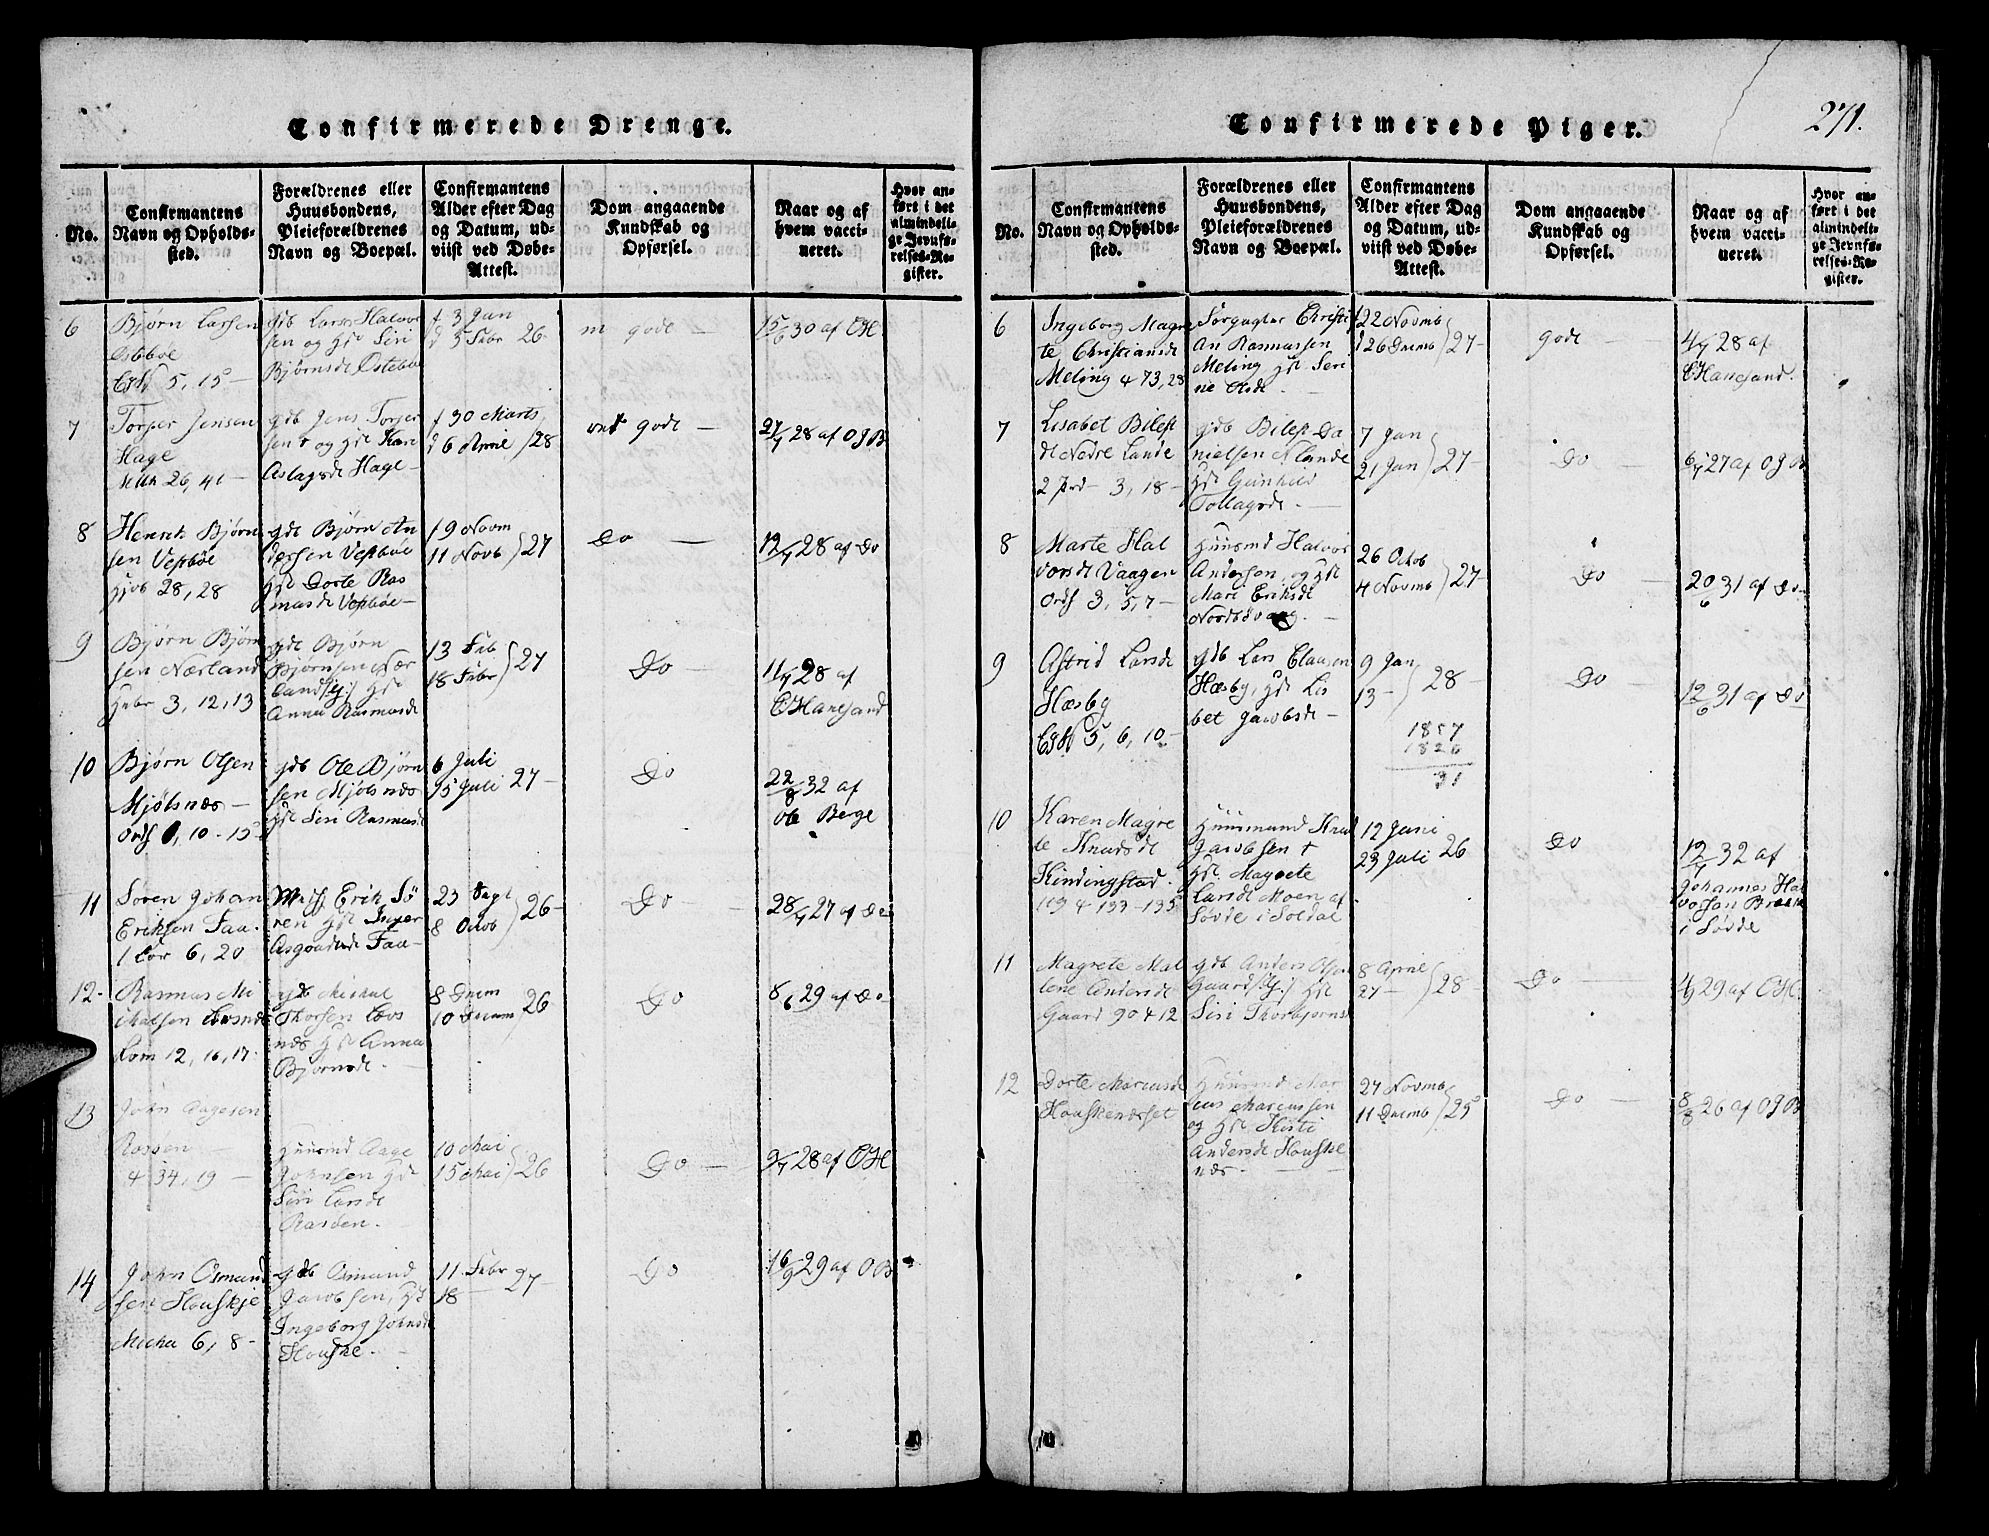 Confirmerede Drenge.
No.
Confirmantens
Navn og Opholds-
sted.
Forældrenes eller
Huusbondens,
Pleieforældrenes
Navn og Boepæl.
Confirmantens
Alder efter Dag
og Datum, ud-
viist ved Døbe-
Attest.
Dom angaaende
Kundskab og
Opførsel.
Naar og af
hvem vacci-
neret.
Hvor an-
ført i det
almindeli-
ge Jevnfø-
relses-Re-
gister.
6
Bjørn Larsen
Østebøe
5, 15 —
gdb Lars Halvor
sen og hst Siri
Bjørnsdt Østebøe
f 3 Jan
d 5 Febr 26
m gode —
15/6 30 af CH
7
Torger Jensen
Hage
26, 41 —
gdb Jens Torger
sen og hst Kari
Aslagsdt Hage —
f 30 Marts
d 6 April /28
gode —
27/7 28 af OJB
8
Henrik Bjørn
sen Vestbøe
28, 28
gdb Bjørn An
dersen Vestbøe
hst Dorte Ras
musdt Vestbøe —
19 Novm
11 Novb } 27
Do —
12/7 28 af Do
9
Bjørn Bjørn
sen Nærland
Hebr 3, 12, 13
gdb Bjørn
Bjørnsen Nær
land hst
Anna Rasmusdt
13 Feb
18 Febr } 27
Do —
11/7 28 af
CHanesand
10
Bjørn Olsen
Mjølsnæs —
Ords 1, 10 - 15
gdb Ole Bjørn
sen Mjølsnæs
hst Siri Rasmusdt
6 Juli
15 Juli 27 —
Do
22/8 32 af
Ob Berge
11
Søren Johan
Eriksen Faa.
1 Cor 6, 20
Erik Sø
ren hst Inger
Asgaudsdt Faa —
23 Sept
8 Octob } 26 —
Do —
28/7 27 af Do
12 -
Rasmus Mi
kalsen Løvsnæs
Rom 12, 16, 17.
gdb Mickal
Thorsen Løvs
næs hst Anna
Bjørnsdt. —
8 Decm
10 Decem } 26
Do
8/6 29 af Do
13
John Aagesen
Rossen —
4 34, 19 —
Huusmd Aage
Johnsen hst
Siri Larsdt
Rasden. —
10 Mai
15 Mai } 26
Do —
9/7 28 af CH
14
John Osmund
sen Houskje
Micha 6, 8 -
gdb Osmund
Jacobsen, hst
Ingeborg Johnsdt
Houske. —
11 Febr
18 — 27 —
Do
16/9 29 af OB
Confirmerede Piger.
271.
No.
Confirmantens
Navn og Opholds-
sted.
Forældrenes eller
Huusbondens,
Pleieforældrenes
Navn og Boepæl.
Confirmantens
Alder efter Dag
og Datum, ud-
viist ved Døbe-
Attest.
Dom angaaende
Kundskab og
Opførsel.
Naar og af
hvem vacci-
neret.
Hvor an-
ført i det
almindeli-
ge Jevnfø-
relses-Re-
gister.
6
Ingeborg Magre
te Christiansdt
Meling 4 73, 28
Christi
an Rasmussen
Meling hst Seri
ne Olsdt. —
f 22 Novmb
d 26 Decmb } 27 —
gode —
4/7 28 af
CHanesand.
7
Lisabet Bilest
dt Nedre Lande
2 Ptr — 3, 18 —
gdb Bilest Da
nielsen N Lande
hst Gunhild
Tollagsdt. —
7 Jan
21 Jan } 27 —
Do —
6/7 27 af OJB
8
Marte Hal
vorsdt Vaagen
Ords 3, 5, 7 —
Huusmd Halvor
Andersen, og hst
Mari Eriksdt
Nordsdvaag. —
26 Octob
4 Novmb } 27 —
Do —
20/6 31 af Do
9
Astrid Larsdt
Hæsby
5, 6, 10 —
gdb Lars Clausen
Hæsby, hst Lis
bet Jacobsdt —
9 Jan
13 — } 28 —
1857
1826
31
Do
12/6 31 af Do
10
Karen Magre
te Knudsdt
Kindingstad.
113 4 133 - 135
Huusmand Knud
Jacobsen +
hst Magrete
Larsdt Moen af
Søvde i Soldal
12 Juni
23 Juli 26
Do
12/7 32 af
Johannes Hal
vorsen Braek
i Søvde
11
Magrete Mal
lene Andersdt
Gaard 90 4 12
gdb Anders Olsen
Gaard hst
Siri Thorbjørnsdt
8 April
27 — } 28 —
Do —
4/9 29 af CH.
12
Dorte Marcusdt
Houskenæsset
Huusmd Mar
cus Marcussen
og hst Kisti
Andersdt Houske
næs. —
27 Novmb
11 Decmb } 25
Do —
8/8 26 af OJB